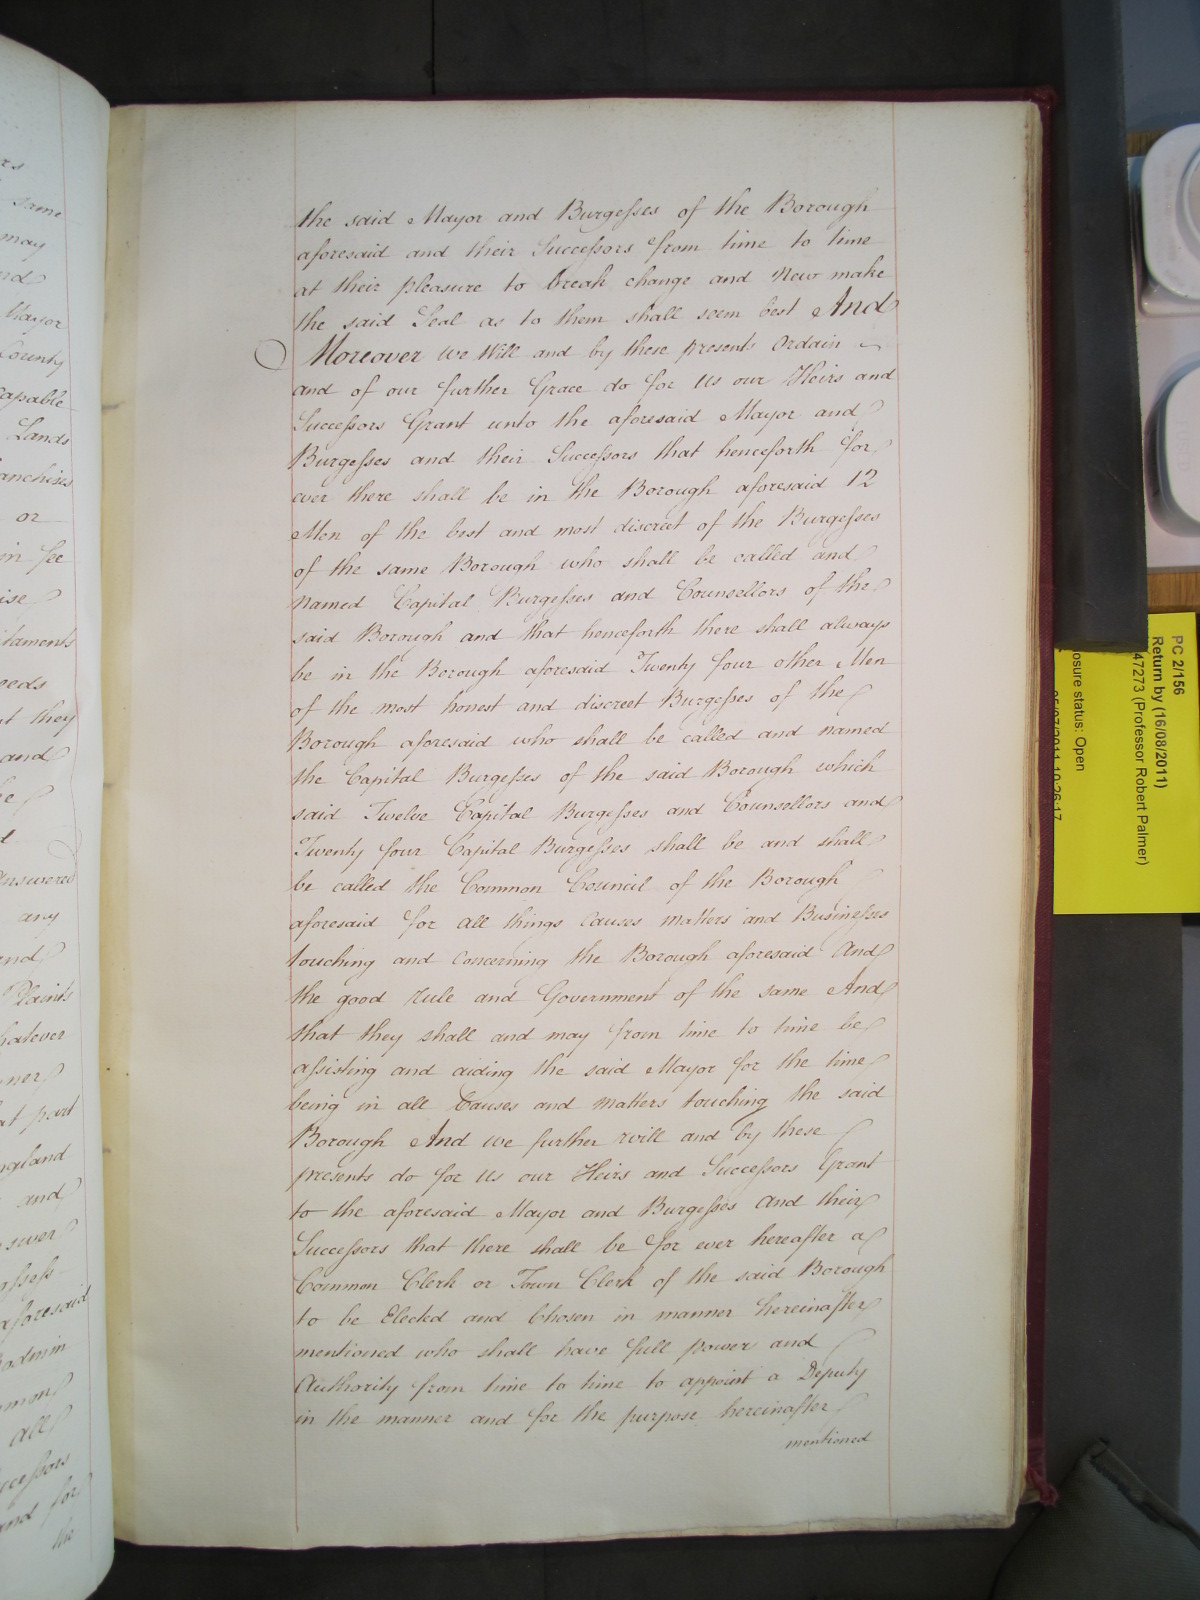 the said Mayor and Burgesses of the Borough
aforesaid and their Successors from time to time
at their pleasure to break change and New make
the said Seal as to them shall seem best And
Moreover We Will and by these presents Ordain
and of our further Grace do for Us our Heirs and
Successors Grant unto the aforesaid Mayor and
Burgesses and their Successors that henceforth for
ever there shall be in the Borough aforesaid 12
Men of the best and most discreet of the Burgesses
of the same Borough who shall be called and
named Capital Burgesses and Counsellors of the
said Borough and that henceforth there shall always
be in the Borough aforesaid Twenty four other Men
of the most honest and discreet Burgesses of the
Borough aforesaid who shall be called and named
the Capital Burgesses of the said Borough which
said Twelve Capital Burgesses and Counsellors and
Twenty four Capital Burgesses shall be and shall
be called the Common Council of the Borough
aforesaid for all things Causes matters and Businesses
touching and Concerning the Borough aforesaid And
the good rule and Government of the same And
that they shall and may from time to time be
assisting and aiding the said Mayor for the time
being in all Causes and Matters touching the said
Borough And we further will and by these
presents do for Us our Heirs and Successors Grant
to the aforesaid Mayor and Burgesses and their
Successors that there shall be for ever hereafter a
Common Clerk or Town Clerk of the said Borough
to be Elected and Chosen in manner hereinafter
mentioned who shall have full power and
Authority from time to time to appoint a Deputy
in the manner and for the purpose hereinafter
mentioned
same
may
Mayor
County
capable
Lands
or
in fee
they
and
Answered
any
Plaints
part
and
aforesaid
all
and for
the
PC 2/156
Return by (16/08/2011)
47273 (Professor Robert Palmer)
osure status: Open
10:26:17